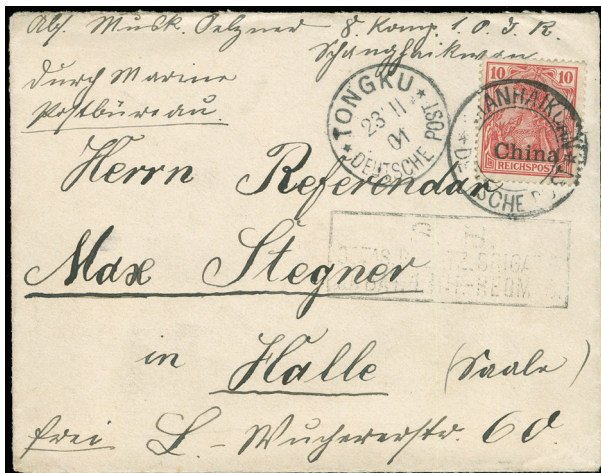 Abs. Musk. Pelzner 8. Komp. 1. O. J. R.
Schanghaikwan
durch Marine
Postbüreau.
TONGKU
23 11 01
DEUTSCHE POST
10 10
SHANHAIKUAN
DEUTSCHE POST
China
REICHSPOST
Herrn Referendar
Max Stegner
in Halle (Saale)
frei L. Wuchererstr. 60.